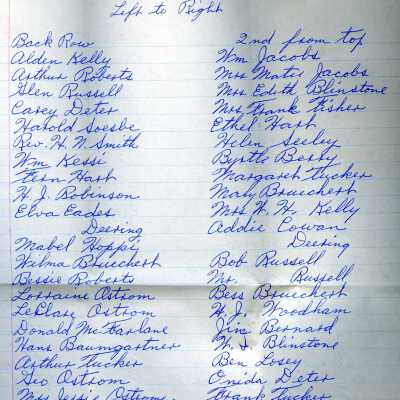 Left to Right
Back Row
Alden Kelly
Arthur Roberts
Glen Russell
Carey Deter
Harold Soesbe
Rev. H. N. Smith
Wm Kessi
Fern Hart
H. J. Robinson
Elva Eades
Deering
Mabel Hoppi
Wilma Brueichert
Bessie Roberts
Lorraine Ostrom
LeClare Ostrom
Donald McFarlane
Hans Baumgartner
Arthur Tucker
Geo Ostrom
Mrs Jessie Ostrom
2nd from top
Wm Jacobs
Mrs Matie Jacobs
Mrs Edith Blinstone
Mrs Frank Fisher
Ethel Hart
Helen Seeley
Byrtle Berry
Margaret Tucker
Mary Brueichert
Mrs W. W. Kelly
Addie Cowan
Deering
Bob Russell
Mr. Russell
Bess Brueichert
W. J. Woodham
Jim Bernard
W. I. Blinstone
Ben Losey
Onida Deter
Frank Tucker